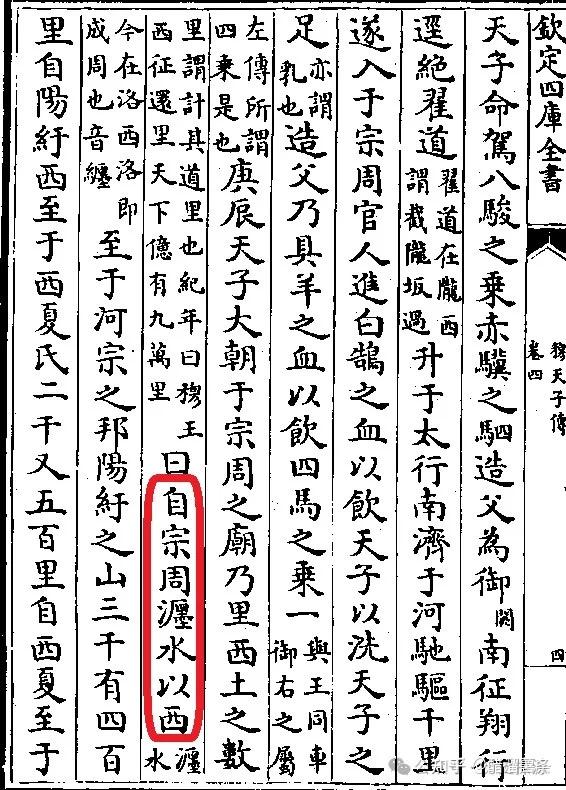 欽定四庫全書
穆天子傳
卷四
四
天子命駕八駿之乘赤驥之駟造父為御闕南征翔行
逕絶翟道翟道在隴西謂截隴坂過升于太行南濟于河馳驅千里
遂入于宗周官人進白鵠之血以飲天子以洗天子之
足亦謂乳也造父乃具羊之血以飲四馬之乘一與王同車御右之屬
左傳所謂四乘是也庚辰天子大朝于宗周之廟乃里西土之數
里謂計其道里也紀年曰穆王西征還里天下億有九萬里曰自宗周瀍水以西瀍水
今在洛西洛即成周也音纏至于河宗之邦陽紆之山三千有四百
里自陽紆西至于西夏氏二千又五百里自西夏至于